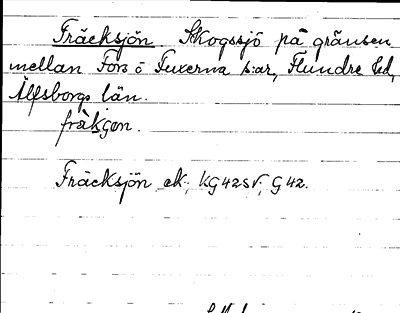 Fräcksjön Skogssjö på gränsen
mellan Fors o Fuxerna s:ar, Flundre hd,
Älfsborgs län.
frakgən.
Fräcksjön ek; KG42SV; G42.